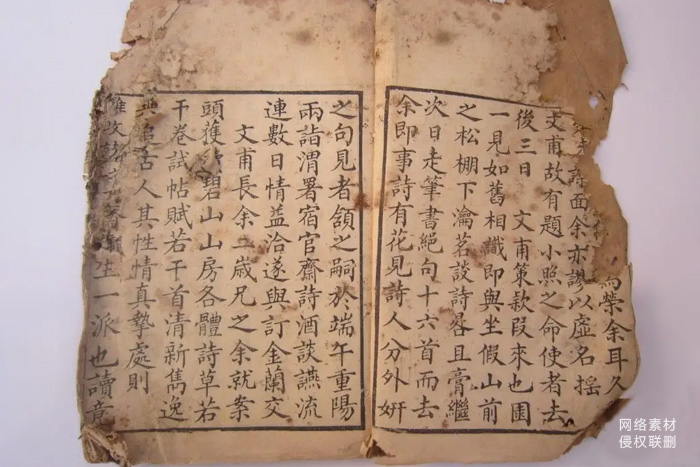 向榮余耳久
詩面余亦謬以虛名搖
文甫故有題小照之命使者去
後三日　文甫策款段來也園
一見如舊相識即與坐假山前
之松棚下瀹茗談詩晷且膏繼
次日走筆書絕句十六首而去
余即事詩有花見詩人分外妍
之句見者頷之嗣於端午重陽
兩詣渭署宿官齋詩酒談讌流
連數日情益洽遂與訂金蘭交
文甫長余二歲兄之余就案
頭獲碧山山房各體詩草若
干卷試帖賦若干首清新雋逸
其性情真摯處則
生一派也讀竟
网络素材
侵权联删